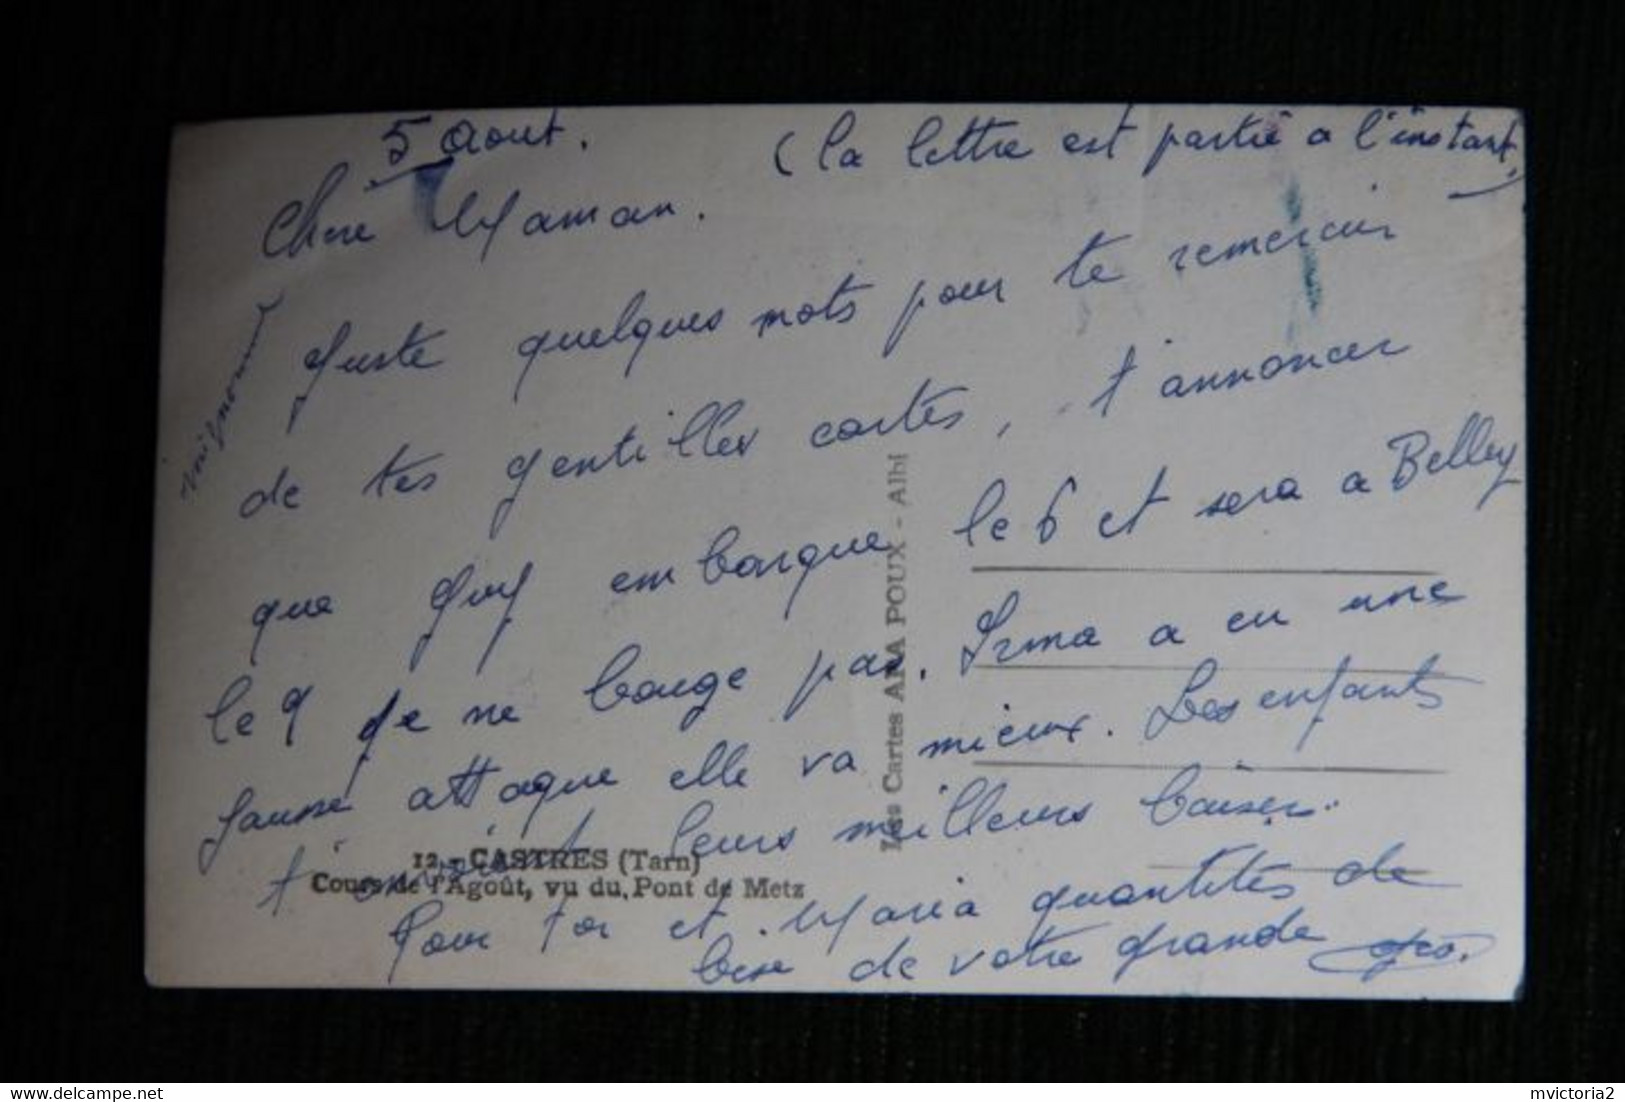 5 Aout. (la lettre est partie a l'instant.
Chere Maman.
Juste quelques mots pour te remercier
de tes gentilles cartes, t'annoncer
que Guy embarque le 6 et sera a Belley
le 9 je ne bouge pas. Irma a eu une
fausse attaque elle va mieux. Les enfants
t'envoient leurs meilleurs baisers.
Pour toi et Maria quantités de
bise de votre grande
Les Cartes APA POUX - Albi
12 - CASTRES (Tarn)
Cours de l'Agoût, vu du Pont de Metz
mvictoria2